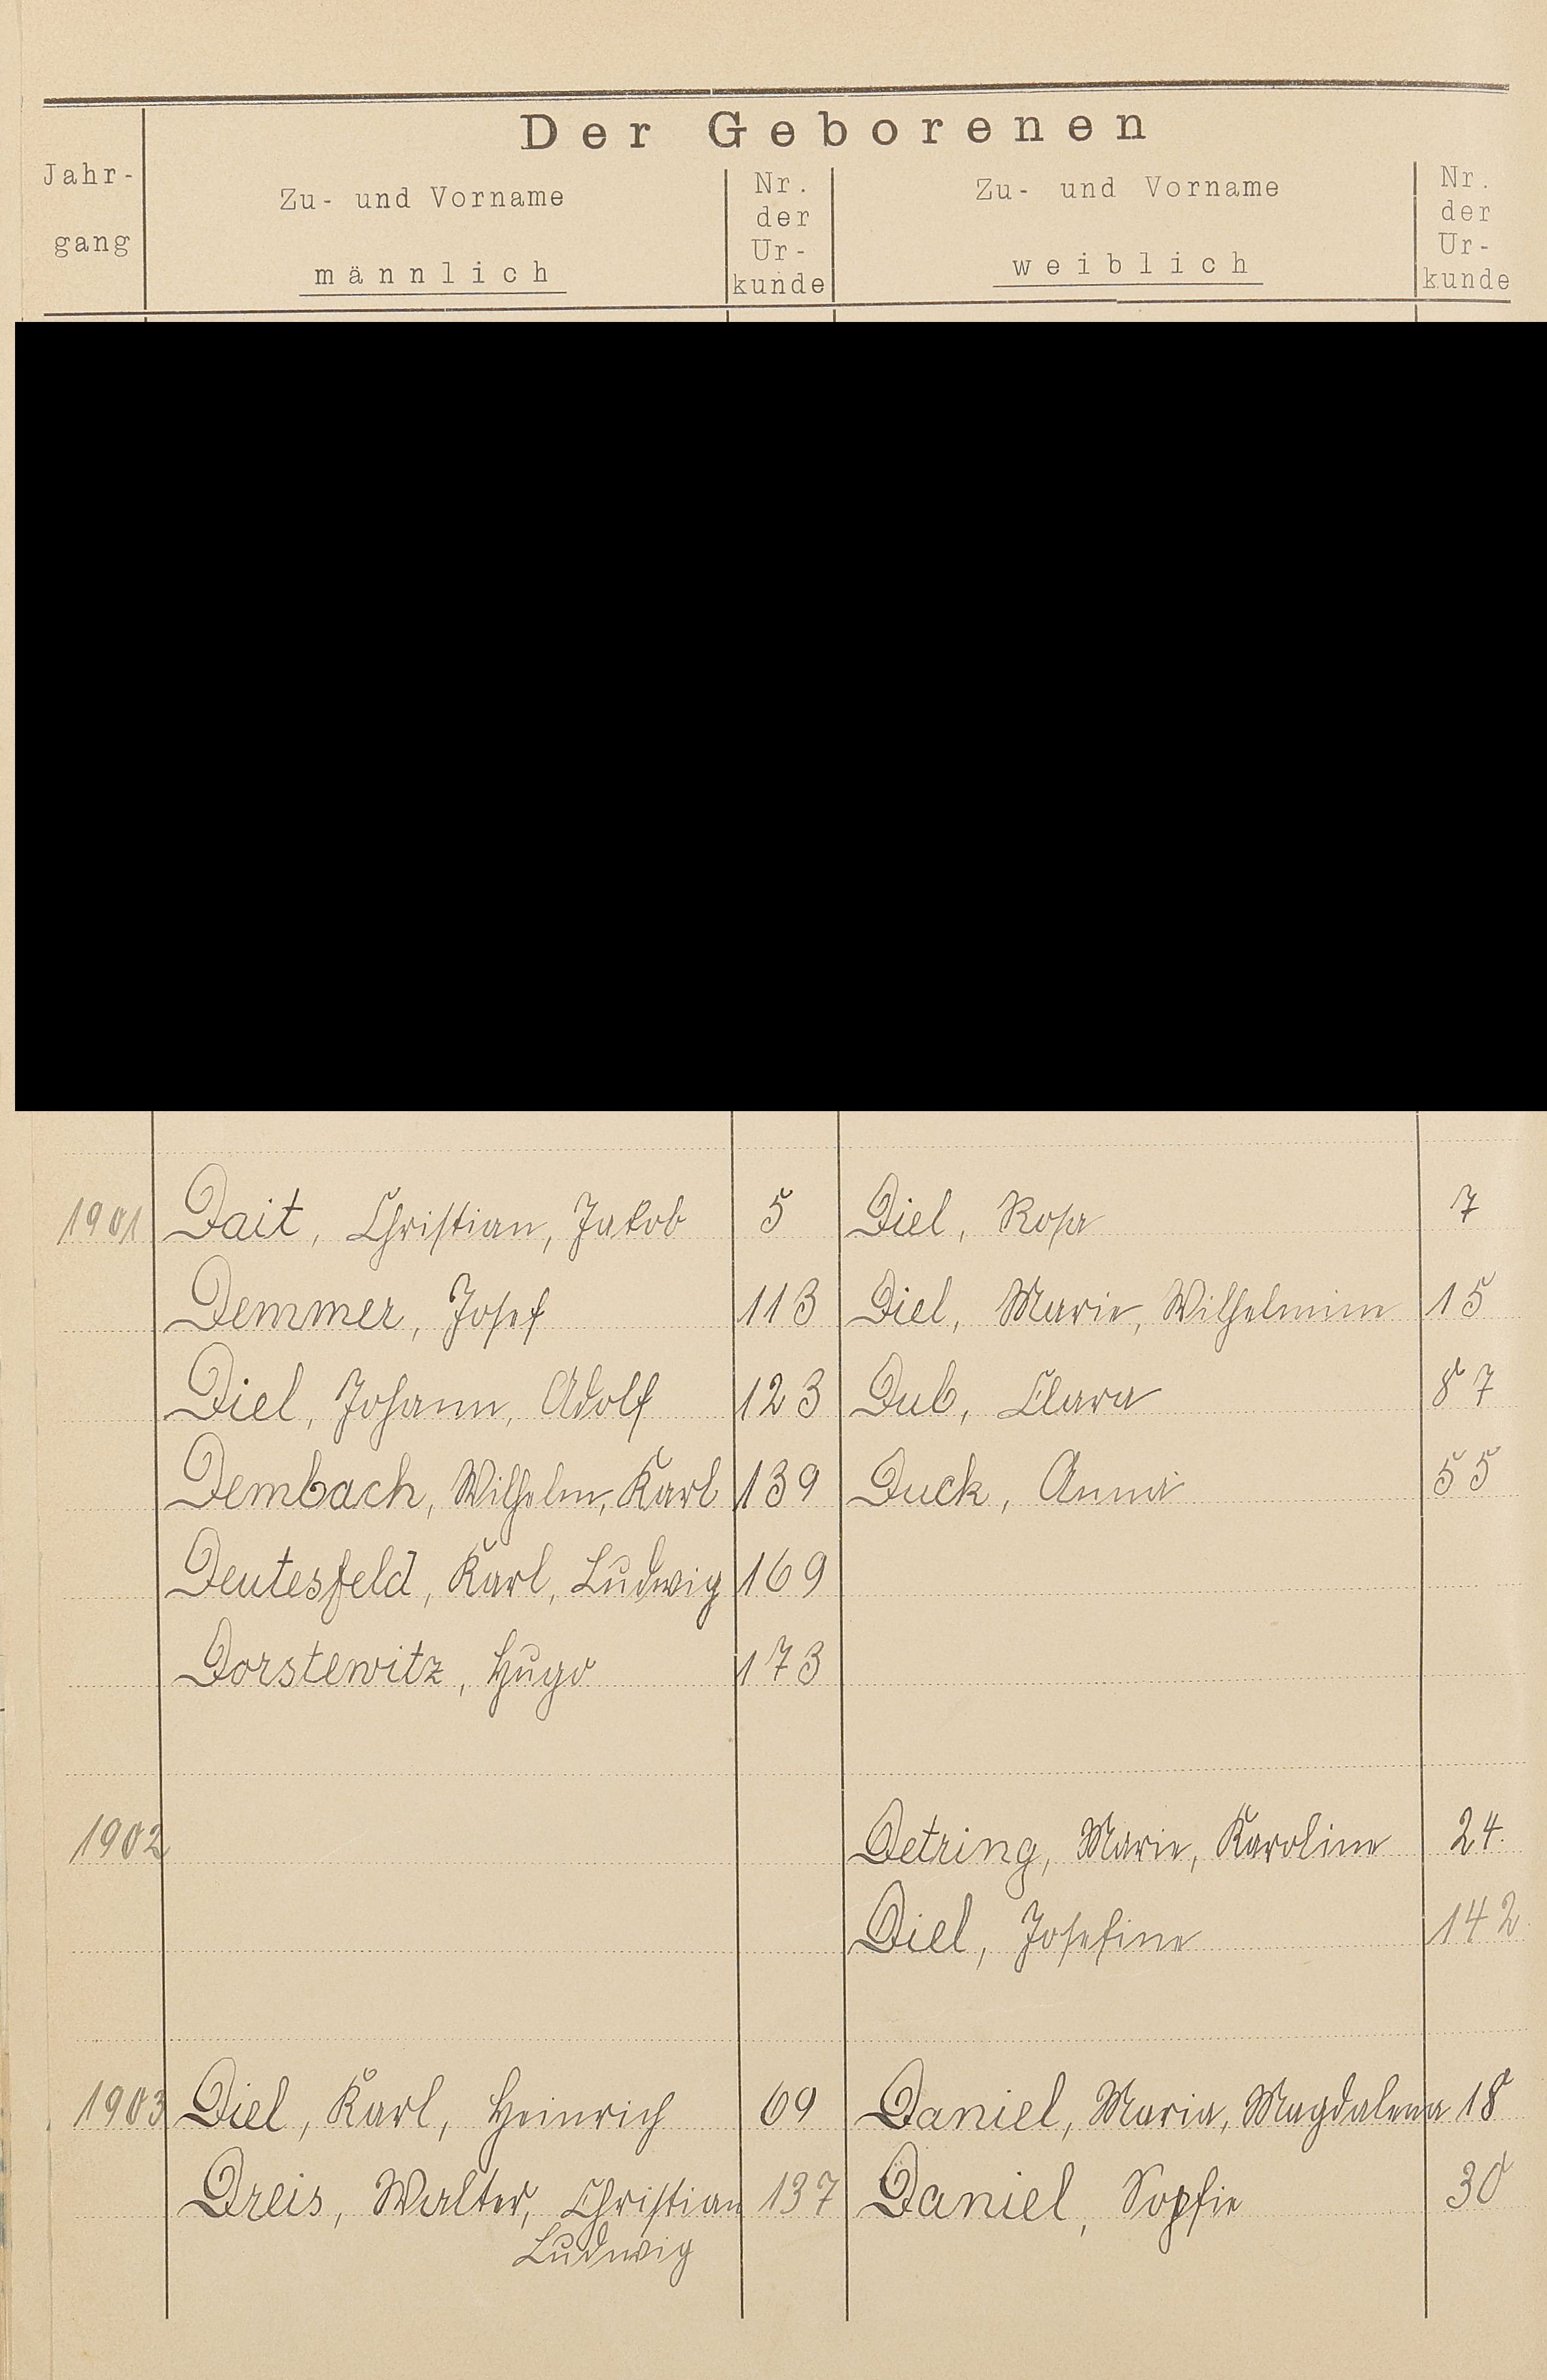 Der Geborenen
Jahr-
gang
Zu- und Vorname
männlich
Nr.
der
Ur-
kunde
Zu- und Vorname
weiblich
Nr.
der
Ur-
kunde
1901 Dait, Christian, Jakob 5 Diel, Rosa 7
Demmer, Josef 113 Diel, Marie, Wilhelmine 15
Diel, Johann, Adolf 123 Dub, Clara 87
Dembach, Wilhelm, Karl 139 Duck, Anna 55
Deutesfeld, Karl, Ludwig 169
Dorstewitz, Hugo 173
1902 Detring, Marie, Karoline 24.
Diel, Josefine 142.
1903 Diel, Karl, Heinrich 69 Daniel, Maria, Magdalena 18
Dreis, Walter, Christian 137 Daniel, Sophie 30
Ludwig